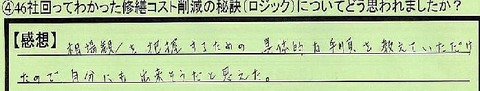 ④46社回ってわかった修繕コスト削減の秘訣(ロジック)についてどう思われましたか？
【感想】相場観を把握するための具体的な手順を教えていただけ
たので自分にも出来そうだと思えた。